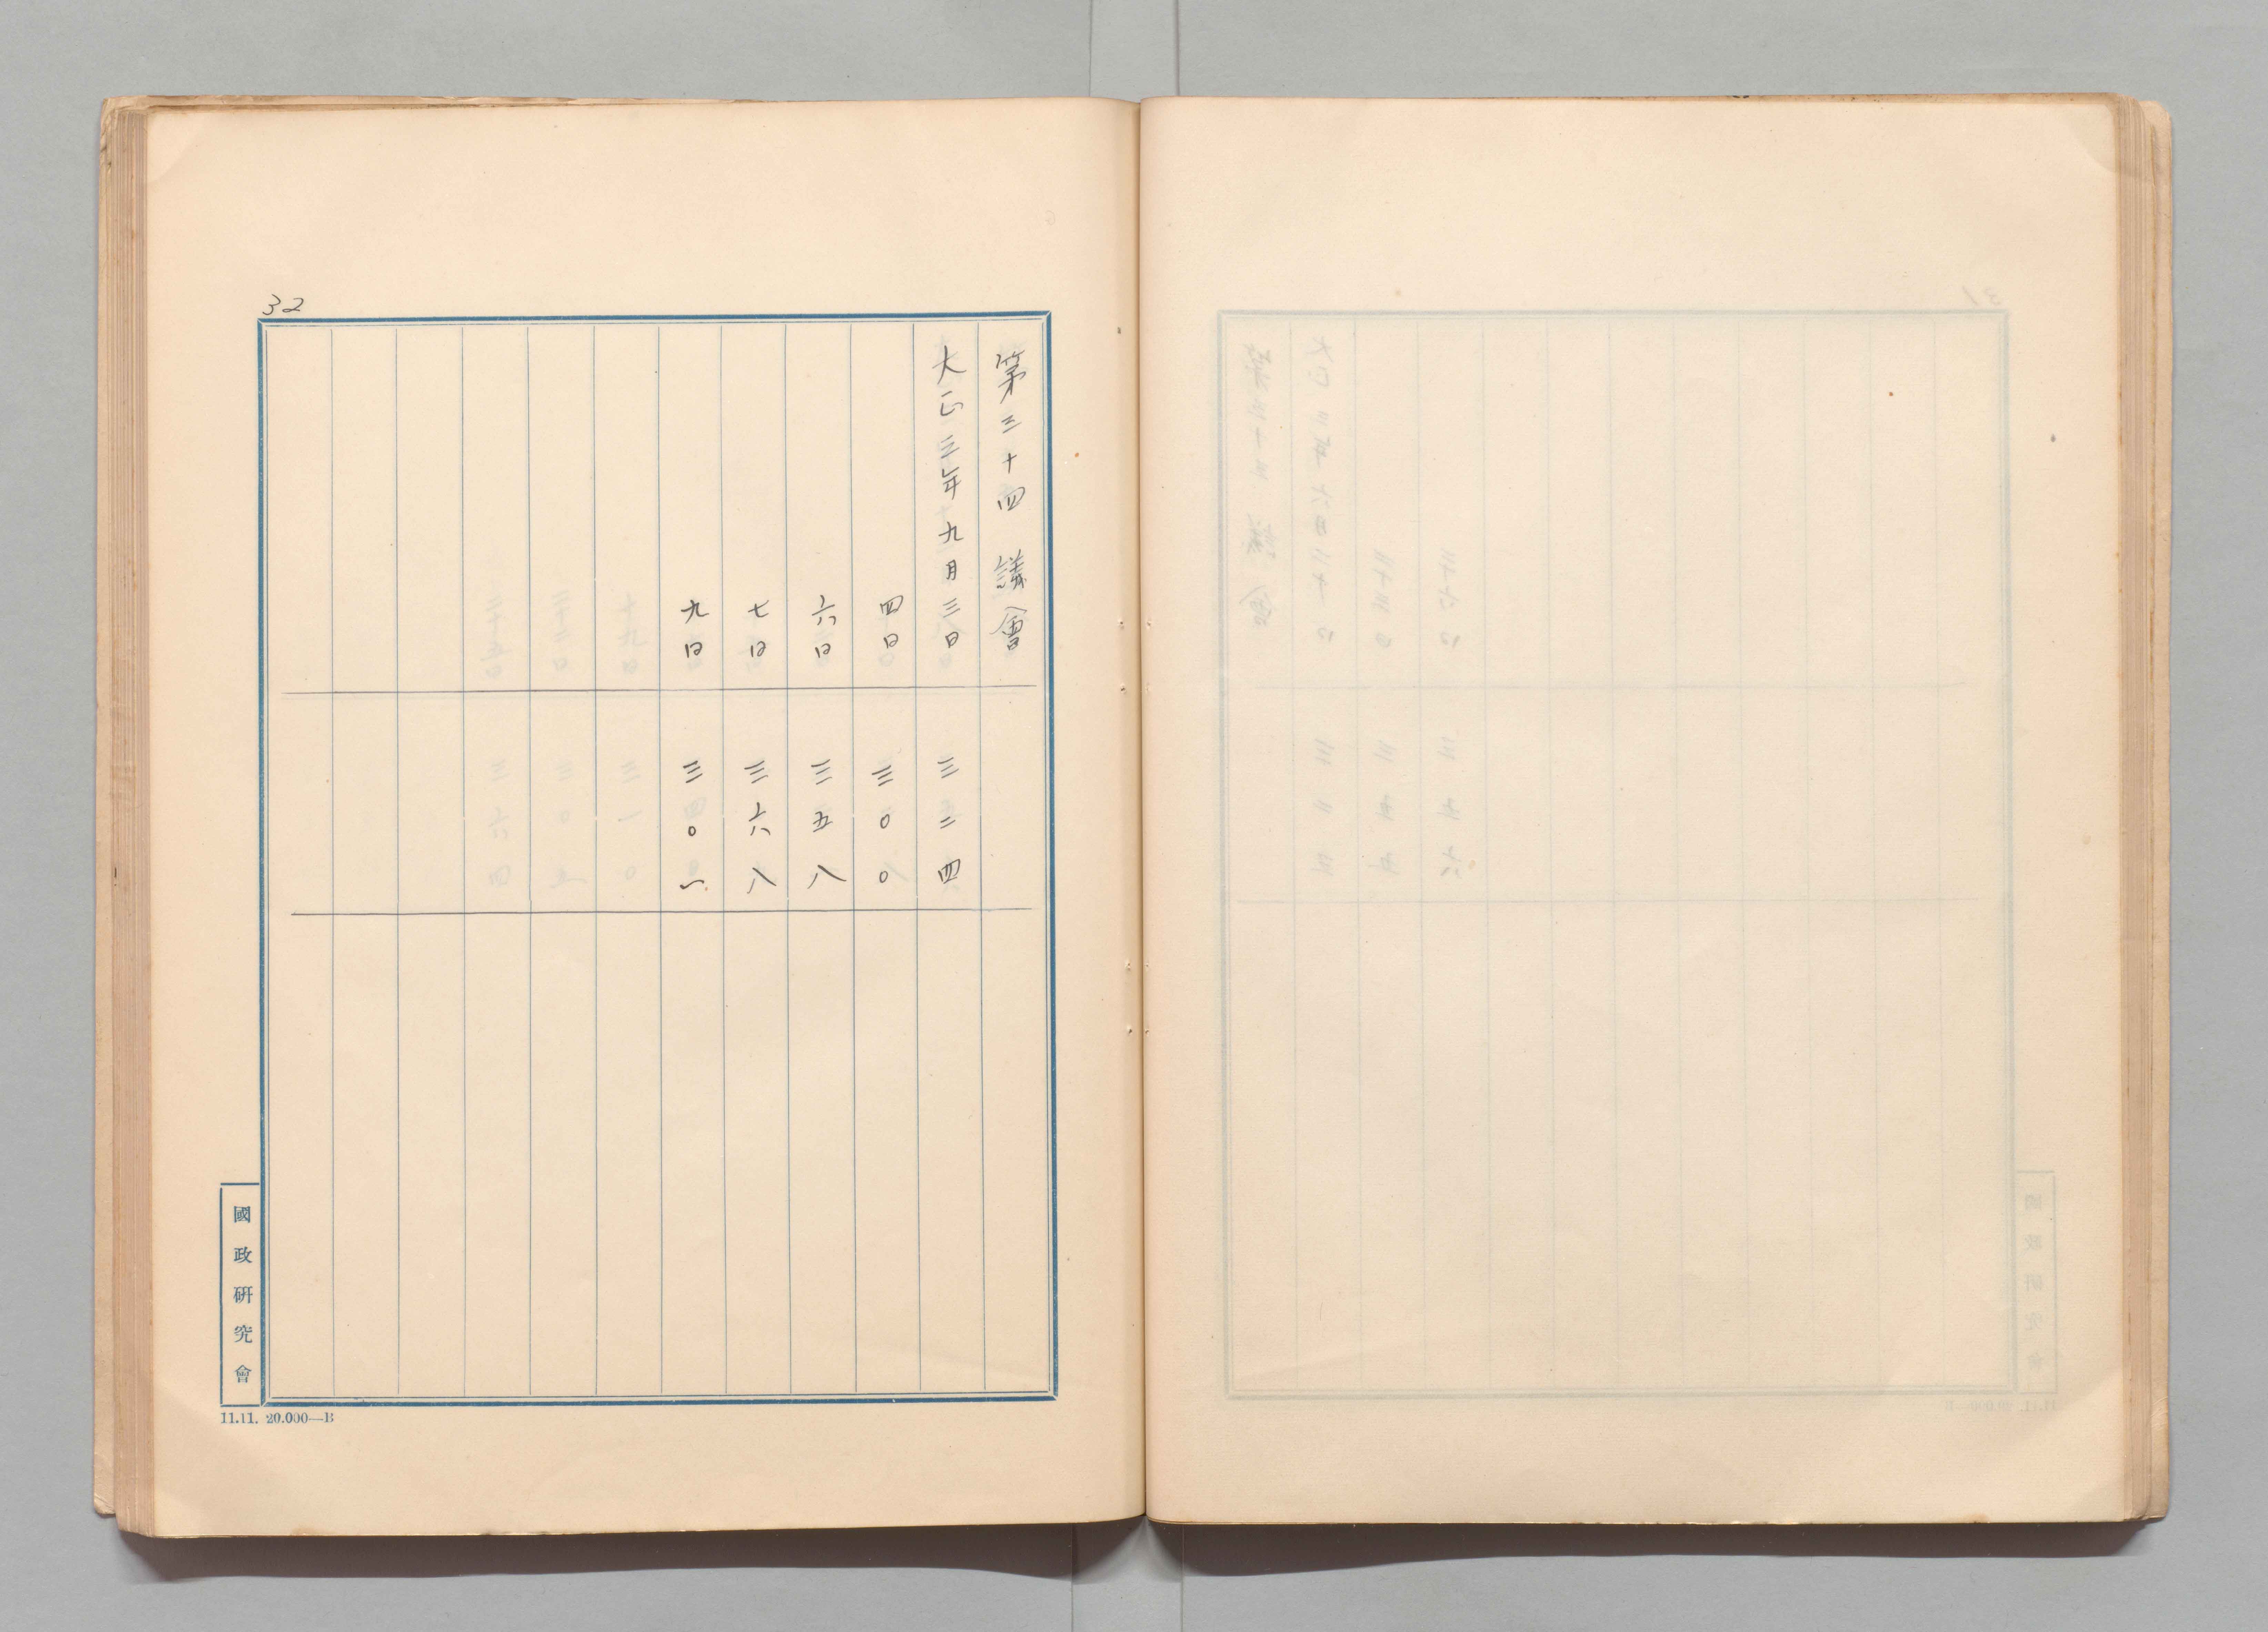 32
第三十四議會
大正三年九月三日 三二四
四日 三〇〇
六日 三五八
七日 三六八
九日 三〇一
國政研究會
11.11. 20.000—B